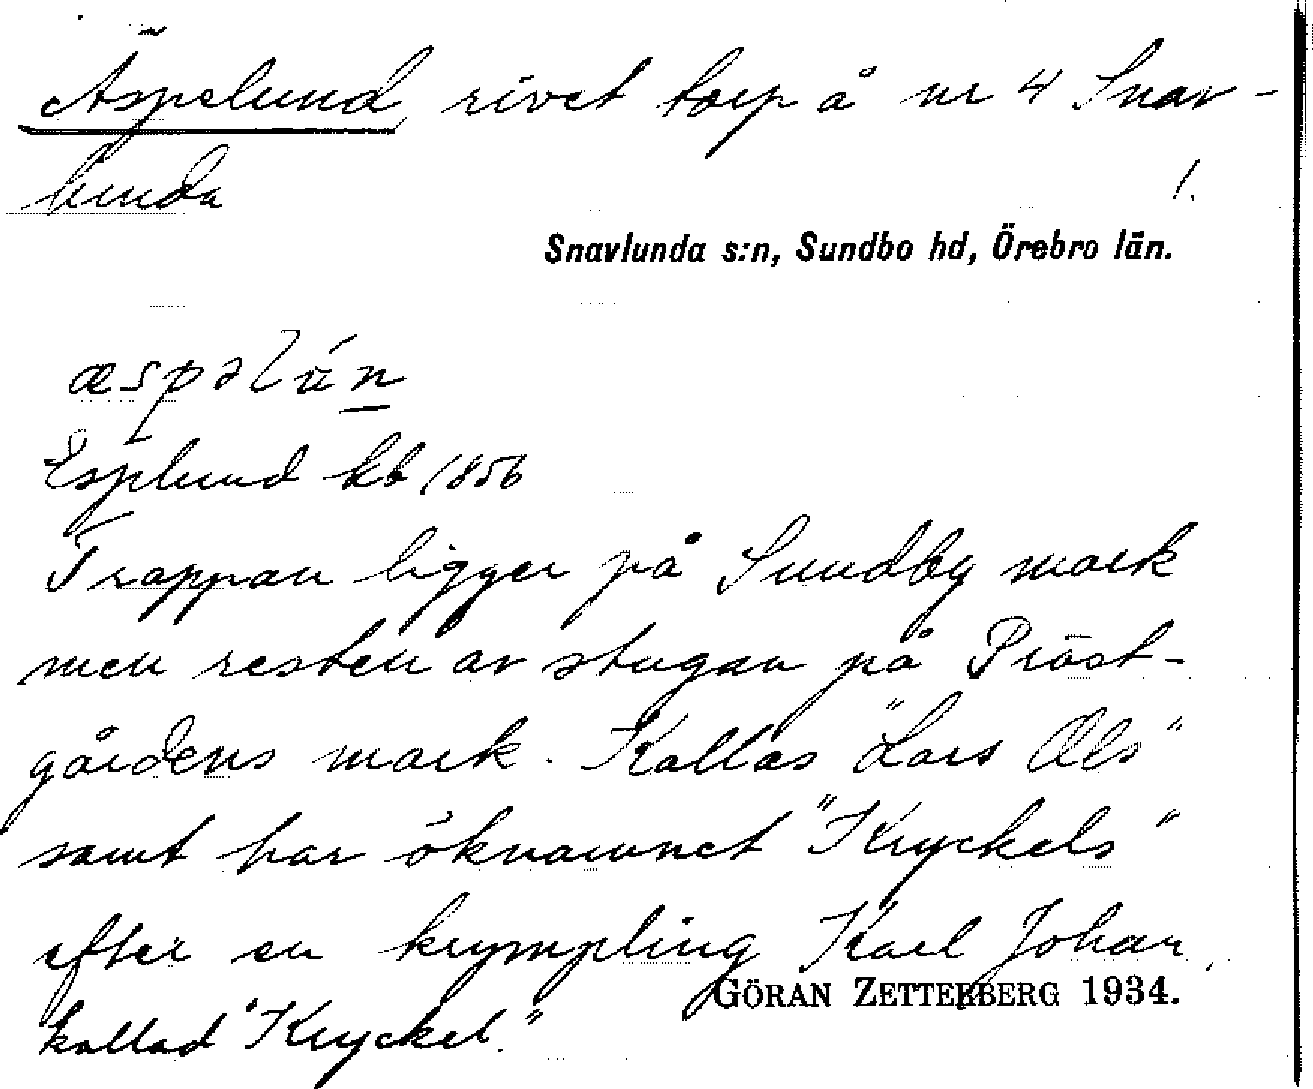 Äspelund, rivet torp å nr 4 Snav-
lunda
1.
Snavlunda s:n, Sundbo hd, Örebro län.
æspəlún
Esplund kb 1856
Trappan ligger på Sundby mark
men resten av stugan på Präst-
gårdens mark. Kallas "Lars Ols"
samt har öknamnet "Kryckels"
efter en krympling Karl Johan,
kallad "Kryckel."
GÖRAN ZETTERBERG 1934.